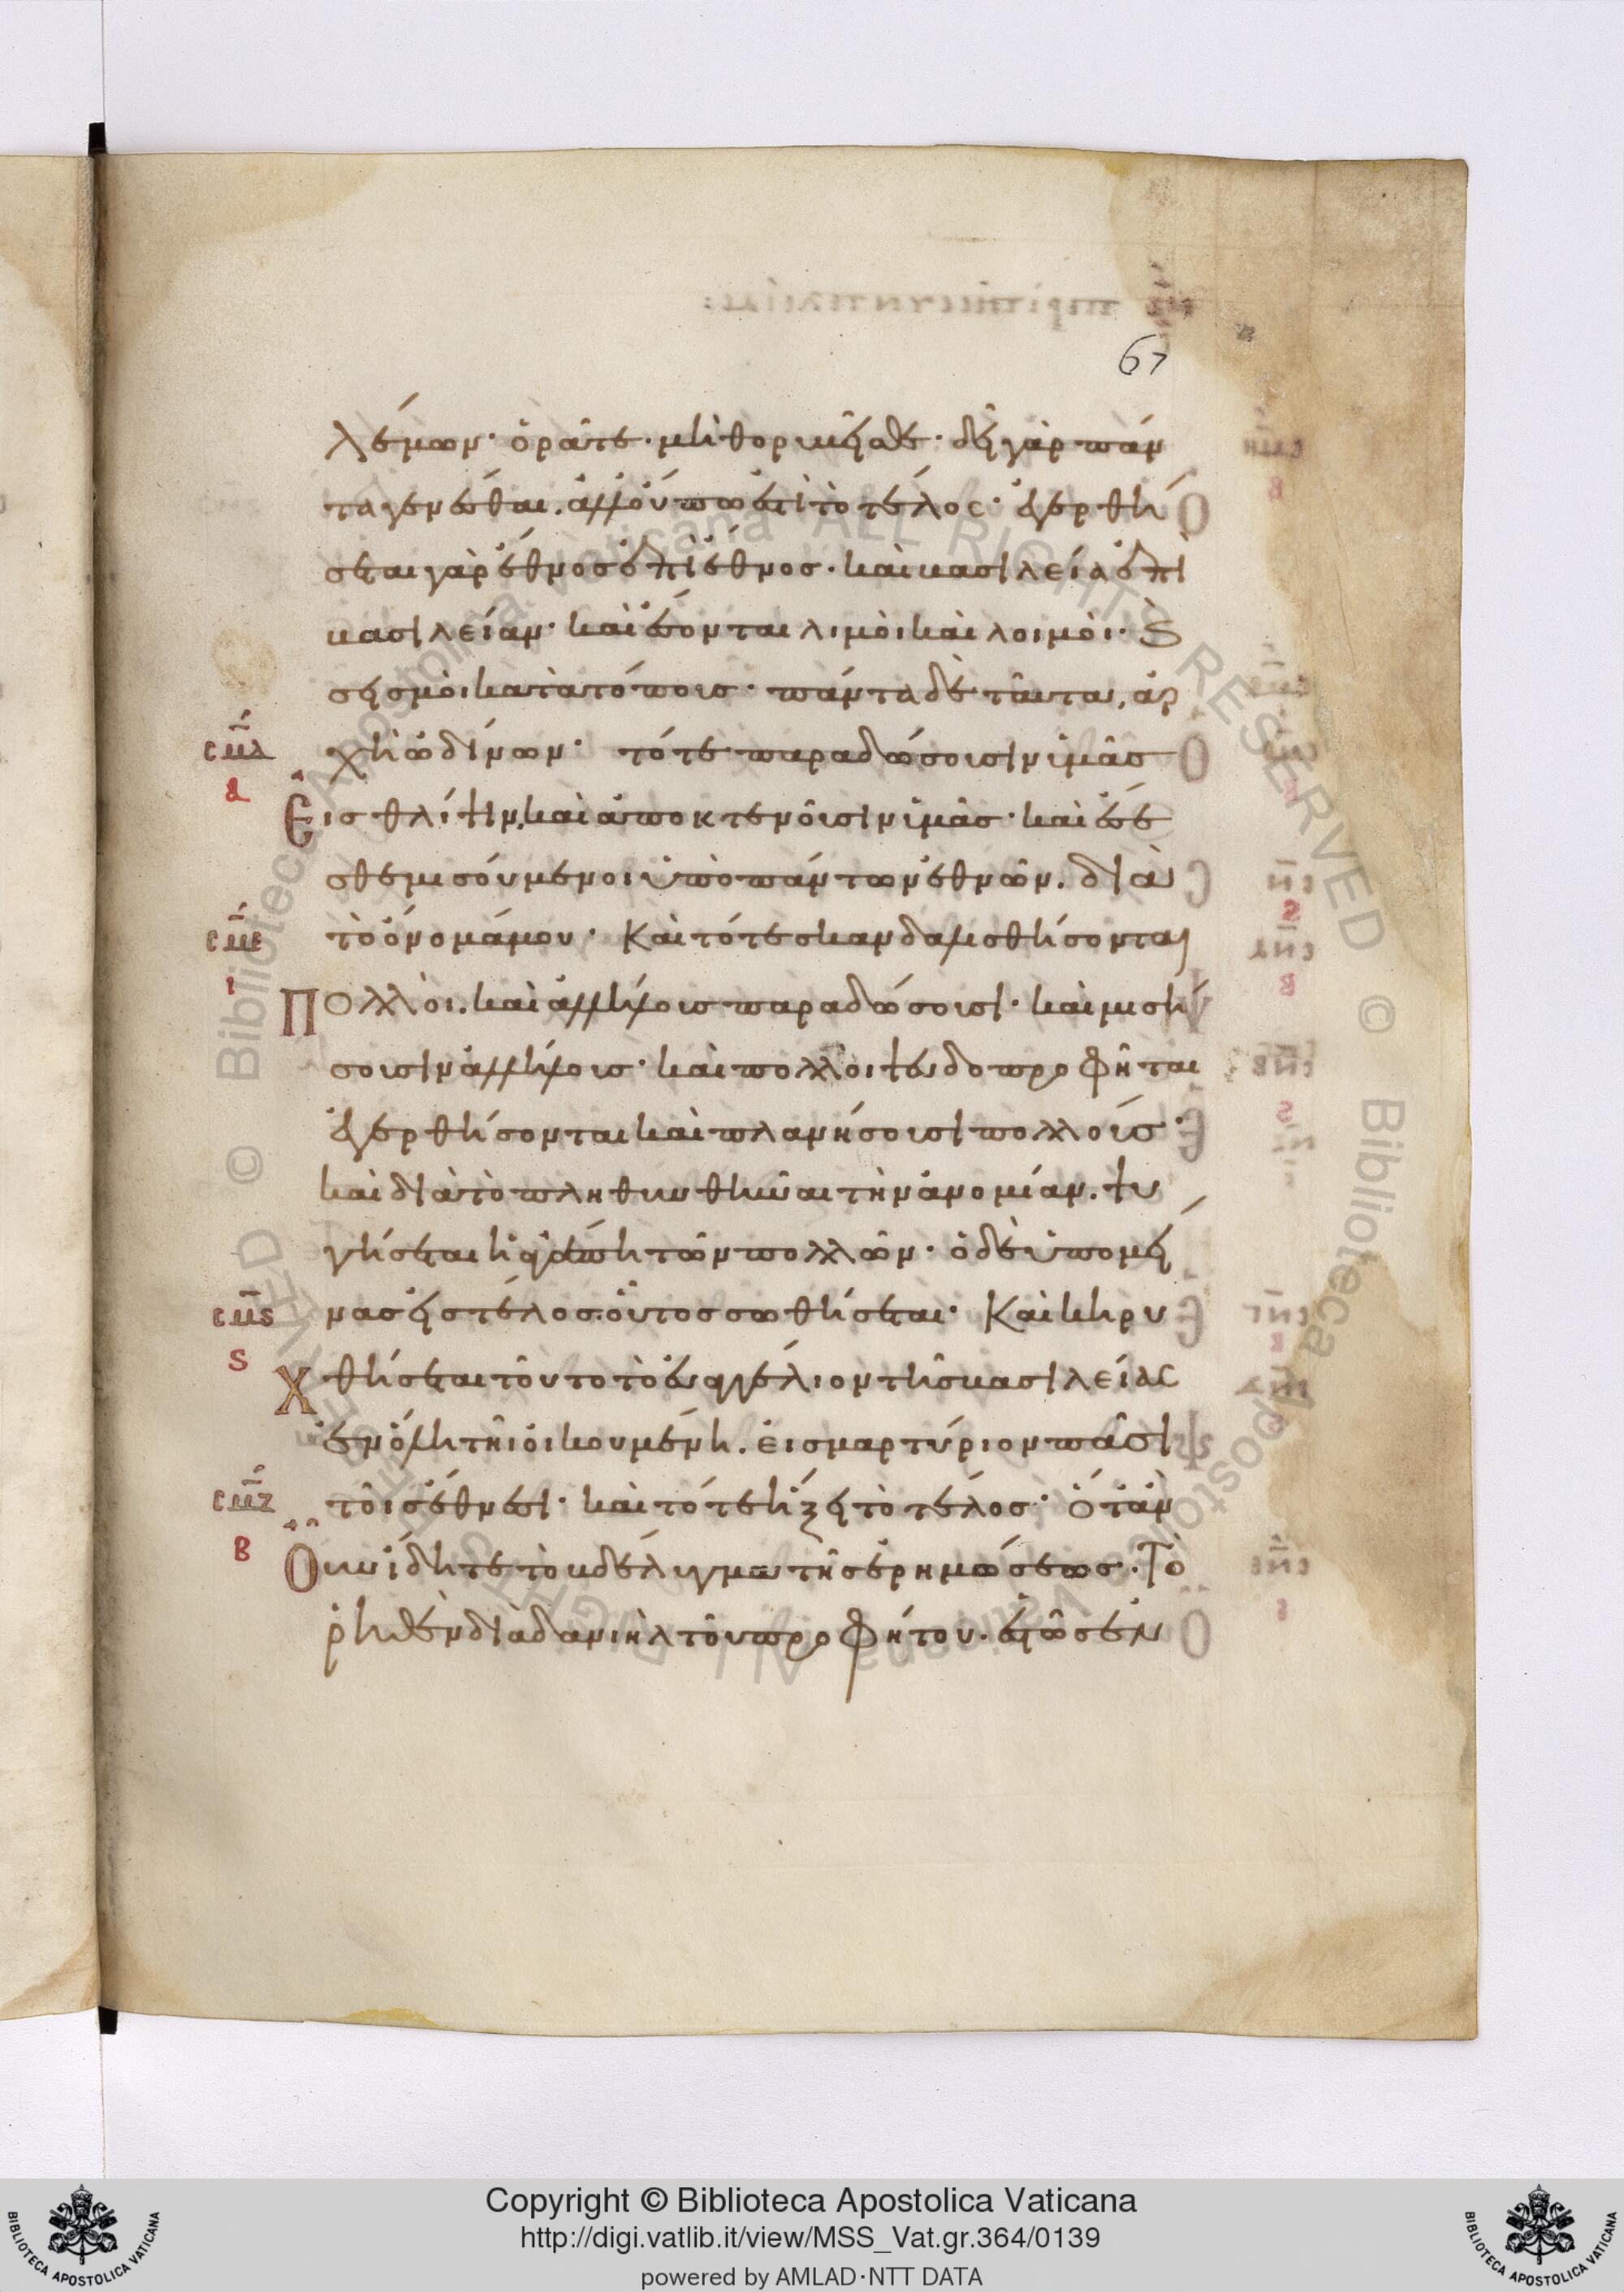 67
λέμων· ὁρᾶτε· μὴ θορυβεῖσθε· δεῖ γὰρ πάν
τα γενέσθαι. ἀλλ' οὔπω ἐστὶ τὸ τέλος· ἐγερθή
σεται γὰρ ἔθνος ἐπὶ ἔθνος· καὶ βασιλεία ἐπὶ
βασιλείαν· καὶ ἔσονται λιμοὶ καὶ λοιμοὶ· Ϛ̀
σεισμοὶ κατὰ τόπους· πάντα δὲ ταῦτα, ἀρ
σμδ χὴ ὠδίνων· τότε παραδώσουσιν ὑμᾶς
Εἰς θλίψιν, καὶ ἀποκτενοῦσιν ὑμᾶς· καὶ ἔσε
σθε μισούμενοι ὑπὸ πάντων ἐθνῶν. διὰ
σμε τὸ ὄνομά μου· Καὶ τότε σκανδαλισθήσονται
ι Πολλοὶ. καὶ ἀλλήλους παραδώσουσι· καὶ μισή
σουσιν ἀλλήλους· καὶ πολλοὶ ψευδοπροφῆται
ἐγερθήσονται καὶ πλανήσουσι πολλούς·
καὶ διὰ τὸ πληθυνθῆναι τὴν ἀνομίαν. ψυ
γήσεται ἡ ἀγάπη τῶν πολλῶν· ὁ δὲ ὑπομεί
σμϛ νας εἰς τέλος. οὗτος σωθήσεται· Καὶ κηρυ
ϛ χθήσεται τοῦτο τὸ εὐαγγέλιον τῆς βασιλείας
ἐν ὅλῃ τῆι οἰκουμένῃ. εἰς μαρτύριον πᾶσι
σμζ τοῖς ἔθνεσι· καὶ τότε ἥξει τὸ τέλος· ὅταν
β Οὖν ἴδητε τὸ βδέλυγμα τῆς ἐρημώσεως· Τὸ
ῥηθὲν διὰ δανιὴλ τοῦ προφήτου. ἑστὼς ἐν
© Biblioteca Apostolica Vaticana ALL RIGHTS RESERVED
Copyright © Biblioteca Apostolica Vaticana
http://digi.vatlib.it/view/MSS_Vat.gr.364/0139
powered by AMLAD·NTT DATA
BIBLIOTECA APOSTOLICA VATICANA
BIBLIOTECA APOSTOLICA VATICANA